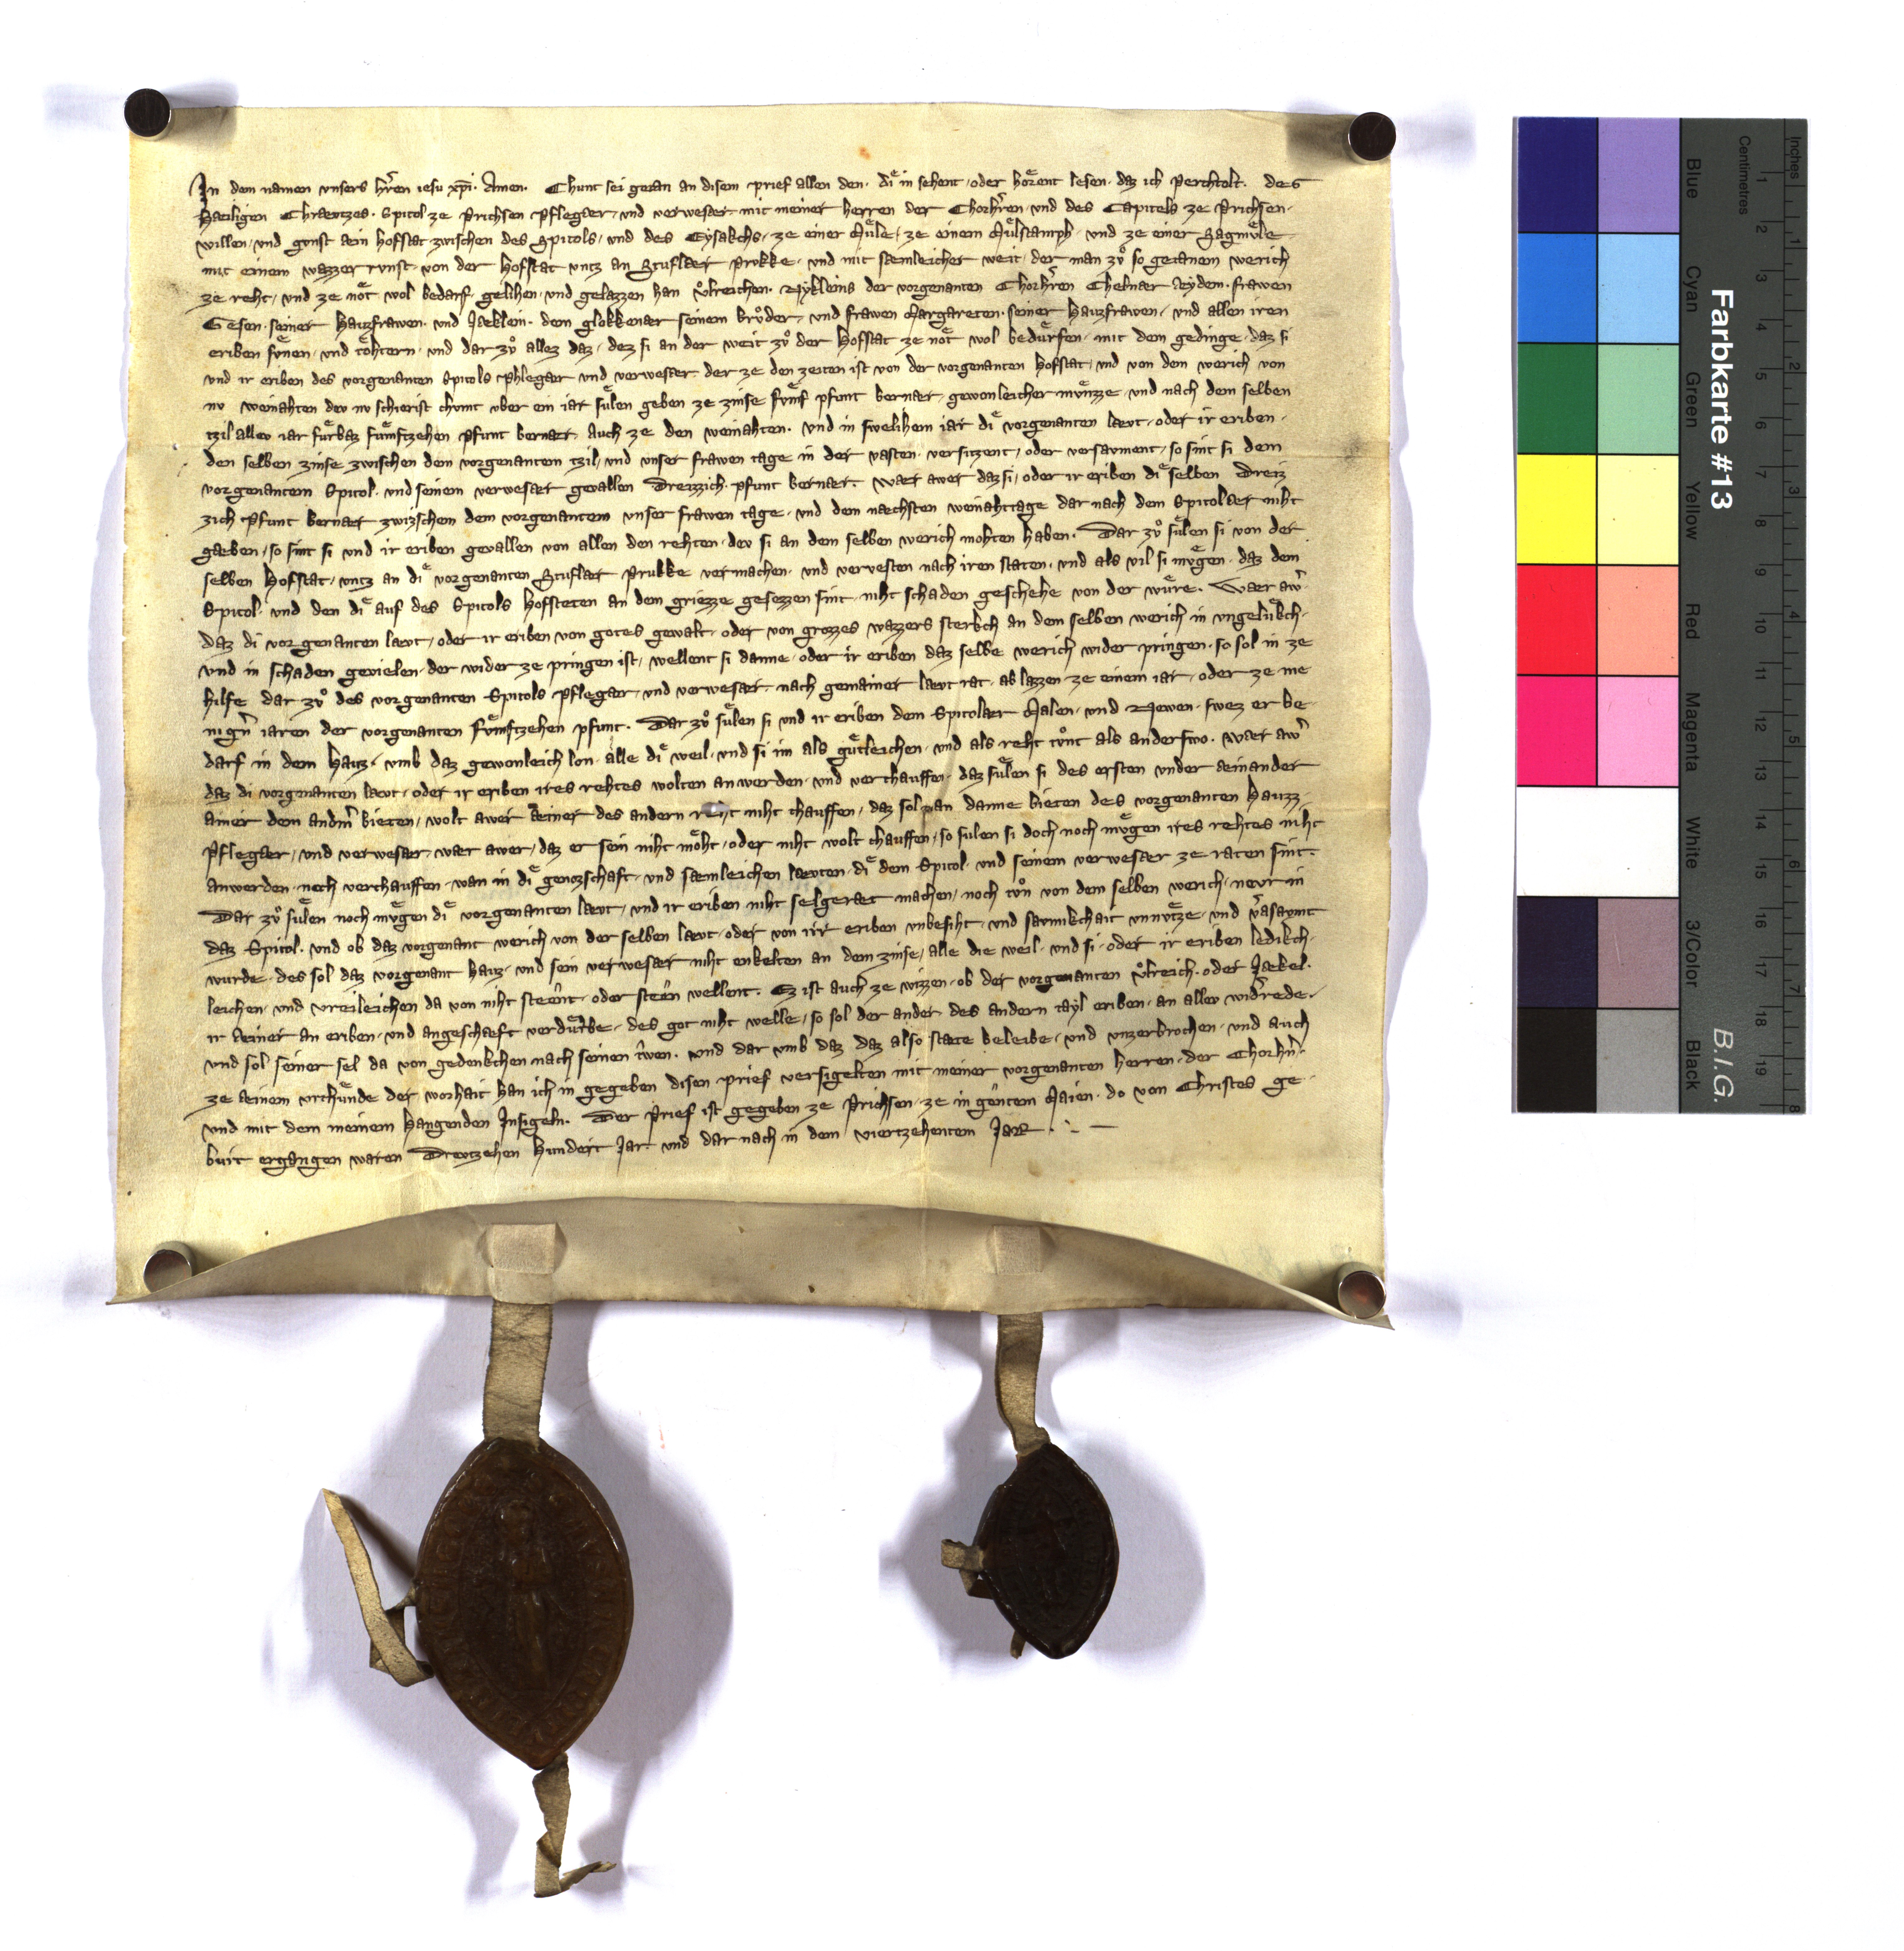 In dem namen vnsers hr̄en iesu xp̄i. Amen. Chunt sei getan an disem prief allen den. diͤ in sehent, oder hoͤrent lesen. daz ich Perchtolt. des
Haeiligen Chraeutzes. Spitol ze Prichsen Pflegaer, vnd verwesaer mit meiner herren der Chorhr̄en, vnd des Capitels ze Prichsen.
willen, vnd gunst aein hofstat zwischen des Spitols, vnd des Eysakchs, ze einer Muͤle, ze einem Muͤlstamph, vnd ze einer Sagmuͤle
mit einem wazzer runst, von der hofstat vntz an Stuflaer Prukke, vnd mit saemleicher weit, der man zuͦ so getanem werich
ze reht, vnd ze noͤt wol bedarf, gelihen, vnd gelazzen han Vͦlreichen. Nykleins der vorgenanten Chorhr̄en Chelnaer Aydem. frawen
Gesen. seiner Hauzfrawen. vnd Jaeklein. dem glokkenaer seinem bruͦder, vnd frawen Margareten. seiner Hauzfrawen, vnd allen iren
eriben suͤnen, vnd toͤhtern, vnd dar zuͦ allez daz, dez si an der weit zuͦ der Hofstat ze noͤt wol beduͤrfen, mit dem gedinge, daz si
vnd ir eriben des vorgenanten Spitols Phlegaer vnd verwesaer der ze den zeiten ist von der vorgenanten Hofstat, vnd von dem werich von
nv weinahten dev nv schierist chvmt vber ein iar suͤlen geben ze zinse fuͤnf pfunt bernaer, gewonleicher muͤnzze, vnd nach dem selben
tzil allev iar fuͤrbaz fuͤnftzehen pfunt bernaer auch ze den weinahten. vnd in swelihem iar diͤ vorgenanten laevt, oder ir eriben.
den selben zinse zwischen dem vorgenantem tzil, vnd vnser frawen tage in der vasten, versitzent, oder versavment, so sint si dem
vorgenantem Spitol. vnd seinem verwesaer gevallen Dreizzich. pfunt bernaer. waer awer daz si, oder ir eriben diͤ selben Dreiz
zich Pfunt bernaer zwizschem dem vorgenantem vnser frawen tage, vnd dem naechsten weinahttage dar nach dem Spitolaer niht
gaeben, so sint si vnd ir eriben gevallen von allen den rehten, dev si an dem selben werich mohten haben. Dar zuͦ suͤlen si von der
selben Hofstat, vntz an diͤ vorgenanten Stuflaer Prukke vermachen, vnd vervesten nach iren staten, vnd als vil si muͤgen, daz dem
Spitol. vnd den diͤ auf des Spitols Hofsteten an dem griezze gesezzen sint, niht schaden geschehe von der wuͤre. Waer aw̄
daz di vorgenanten laevt, oder ir eriben von gotes gewalt, oder von grozzes wazzers sterkch an dem selben werich in vngeluͤkch.
vnd in schaden gevielen, der wider ze pringen ist, wellent si danne, oder ir eriben daz selbe werich wider pringen, so sol in ze
hilfe dar zuͦ des vorgenanten Spitols Pflegaer, vnd verwesaer, nach gemainer laevt rat, ab lazzen ze einem iar, oder ze me
nigm̄ iaren der vorgenanten fuͤnftzehen pfunt. Dar zuͦ suͤlen si vnd ir eriben dem Spitolaer Malen, vnd Newen, swez er be
darf in dem Hauz, vmb daz gewonleich lon, alle diͤ weil, vnd si im als guͤtleichen, vnd als reht tuͦnt als anderswo. waer aw̄
daz di vorgenanten laevt, oder ir eriben ires rehtes wolten anwerden, vnd verchauffen, daz suͤlen si des ersten vnder aeinander
ainer dem andm̄ bieten, wolt awer aeiner des andern reht niht chauffen, daz sol man danne bieten des vorgenanten Hauzz
Pflegaer, vnd verwesaer, waer awer, daz er sein niht moͤht, oder niht wolt chauffen, so sulen si doch noch muͤgen ires rehtes niht
anwerden, noch verchauffen, wan in diͤ genozschaft, vnd saemleichen laevten, diͤ dem Spitol. vnd seinem verwesaer ze raten sint.
Dar zuͦ suͤlen noch muͤgen diͤ vorgenanten laevt, vnd ir eriben niht selgeraet machen, noch tuͦn von dem selben werich, nevr in
daz Spitol. vnd ob daz vorgenant werich von der selben laevt, oder von irr eriben vnbesiht, vnd savmikchait vnnuͤtze, vnd v̄asavmt
wurde, des sol daz vorgenant hauz, vnd sein verwesaer niht enkelten an dem zinse, alle die weil, vnd si, oder ir eriben ledikch
leichen, vnd vreileichen da von niht steͤnt, oder steͤn wellent. Ez ist auch ze wizzen, ob der vorgenanten Vͦlreich. oder Jaekel.
ir aeiner an eriben, vnd angeschaeft verduͤrbe, des got niht welle, so sol der ander des andern tayl eriben, an allev wid̄rede,
vnd sol seiner sel da von gedenkchen nach seinen tr̄wen. vnd dar vmb daz daz also staete beleibe, vnd vnzerbrochen, vnd auch
ze aeinem vrchuͤnde der worhait han ich in gegeben disen prief versigelten mit meiner vorgenanten herren, der Chorhr̄.
vnd mit dem meinem Hangenden Insigeln. Der Prief ist gegeben ze Prichsen, ze in gentem Maien, do von Christes ge
burt ergangen waren Drevtzehen Hundert Jar. vnd dar nach in dem viertzehentem JaR
Farbkarte #13
B.I.G.
Blue Cyan Green Yellow Red Magenta White 3/Color Black
Centimetres
Inches
1 2 3 4 5 6 7 8 9 10 11 12 13 14 15 16 17 18 19
1 2 3 4 5 6 7 8